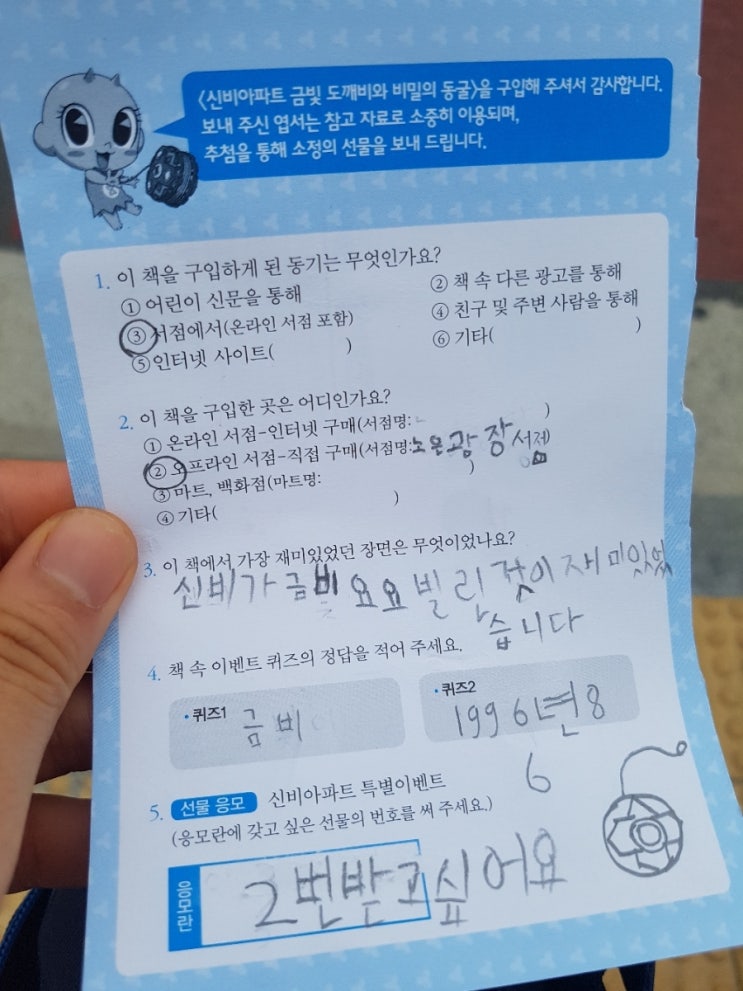 〈신비아파트 금빛 도깨비와 비밀의 동굴〉을 구입해 주셔서 감사합니다.
보내 주신 엽서는 참고 자료로 소중히 이용되며,
추첨을 통해 소정의 선물을 보내 드립니다.
1. 이 책을 구입하게 된 동기는 무엇인가요?
① 어린이 신문을 통해 ② 책 속 다른 광고를 통해
③ 서점에서(온라인 서점 포함) ④ 친구 및 주변 사람을 통해
⑤ 인터넷 사이트( ) ⑥ 기타( )
2. 이 책을 구입한 곳은 어디인가요?
① 온라인 서점-인터넷 구매(서점명: )
② 오프라인 서점-직접 구매(서점명:노은광장서점)
③ 마트, 백화점(마트명: )
④ 기타( )
3. 이 책에서 가장 재미있었던 장면은 무엇이었나요?
신비가 금비 요요 빌린 것이 재미있었
습니다
4. 책 속 이벤트 퀴즈의 정답을 적어 주세요.
• 퀴즈1 금비 • 퀴즈2 1996년8
6
5. 선물 응모 신비아파트 특별이벤트
(응모란에 갖고 싶은 선물의 번호를 써 주세요.)
응모란 2번받고싶어요